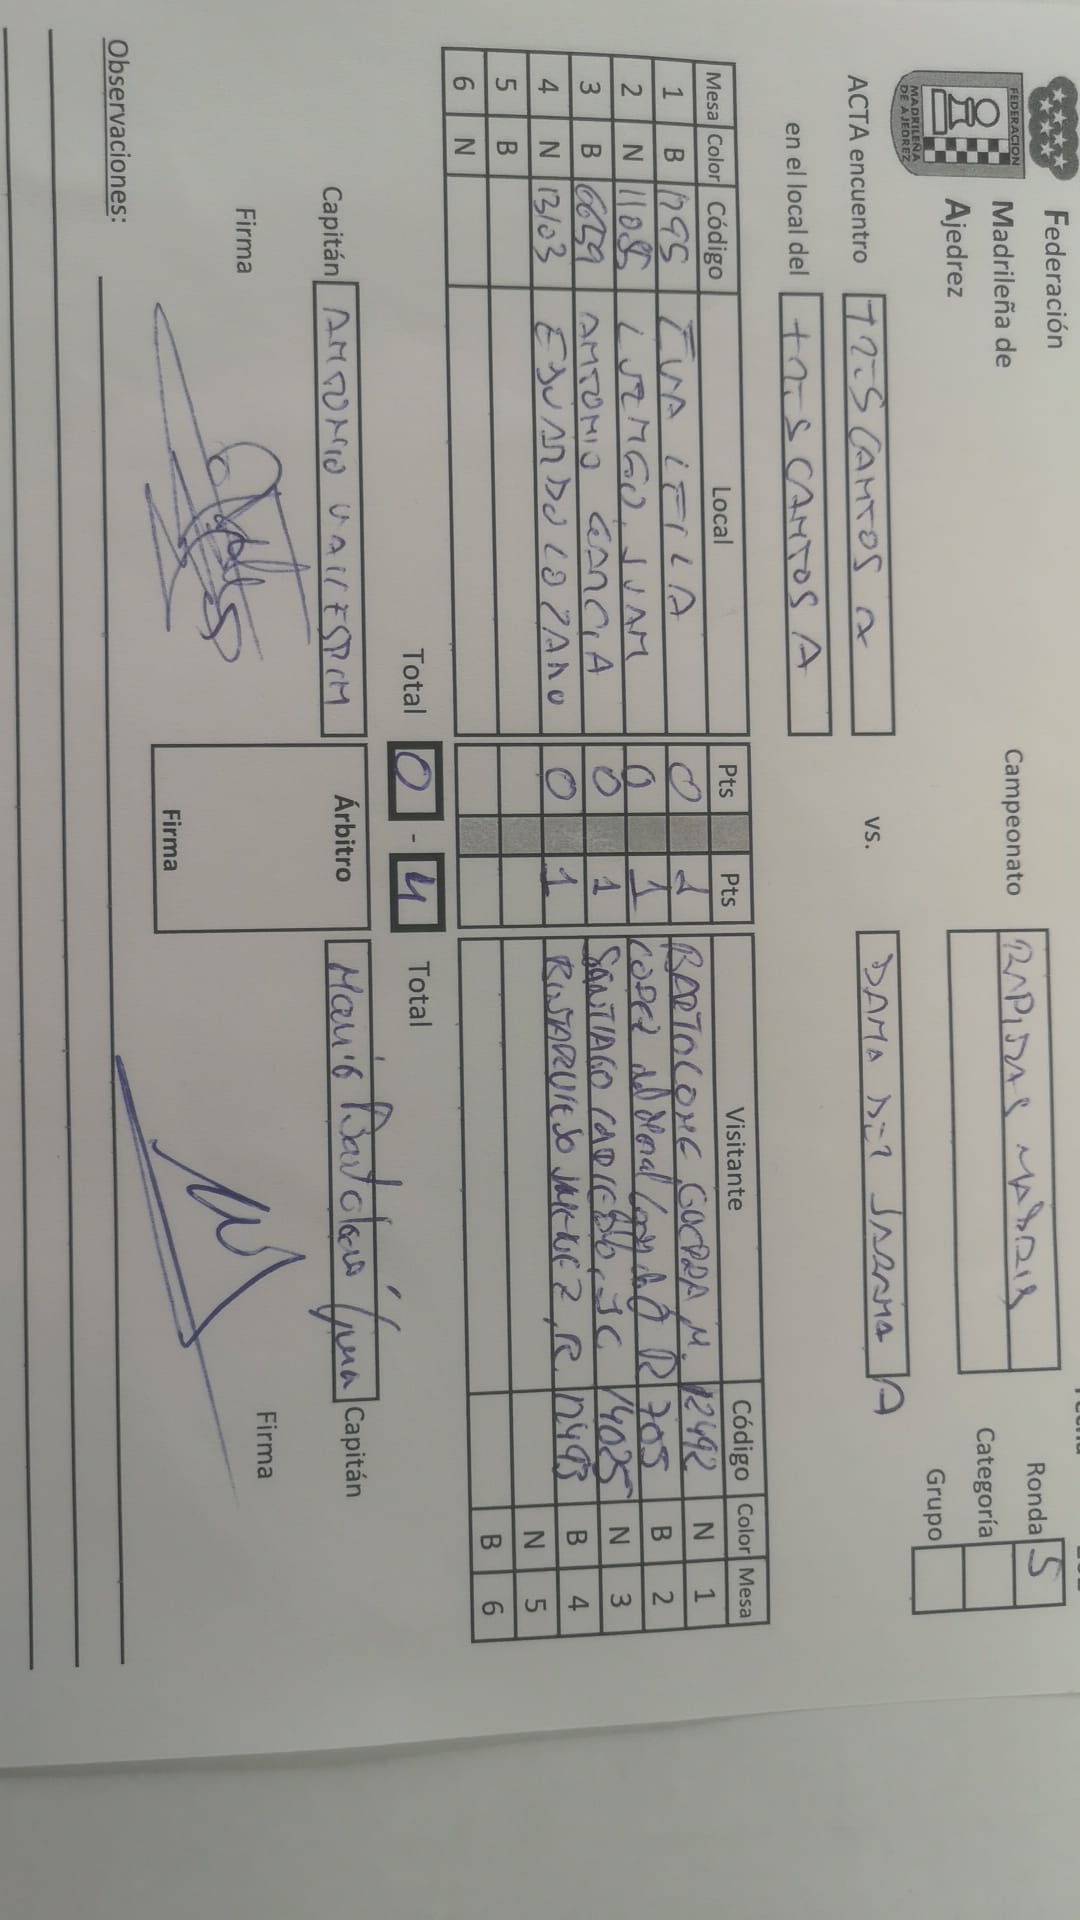 Federación
Madrileña de
Ajedrez
FEDERACION
MADRILEÑA
DE AJEDREZ
Campeonato RAPIDAS MADRID
Ronda 5
Categoría
Grupo
ACTA encuentro TRES CANTOS A vs. DAMA DEL JARAMA A
en el local del TRES CANTOS A
Mesa Color Código Local Pts Pts Visitante Código Color Mesa
1 B 1795 EVA LEILA 0 1 BARTOLOME GUERRA, M. 12492 N 1
2 N 11085 LUENGO, JUAN 0 1 LOPEZ del Moral R 705 B 2
3 B 6659 ANTONIO GARCIA 0 1 SANTIAGO CADIEDO, JC 14025 N 3
4 N 13103 EDUARDO LOZANO 0 1 JIMENEZ, R. 12493 B 4
5 B N 5
6 N B 6
Total 0 - 4 Total
Capitán ANTONIO VALLESPIN Árbitro Mario Bartolomé Guerra Capitán
Firma Firma
Firma
Observaciones: